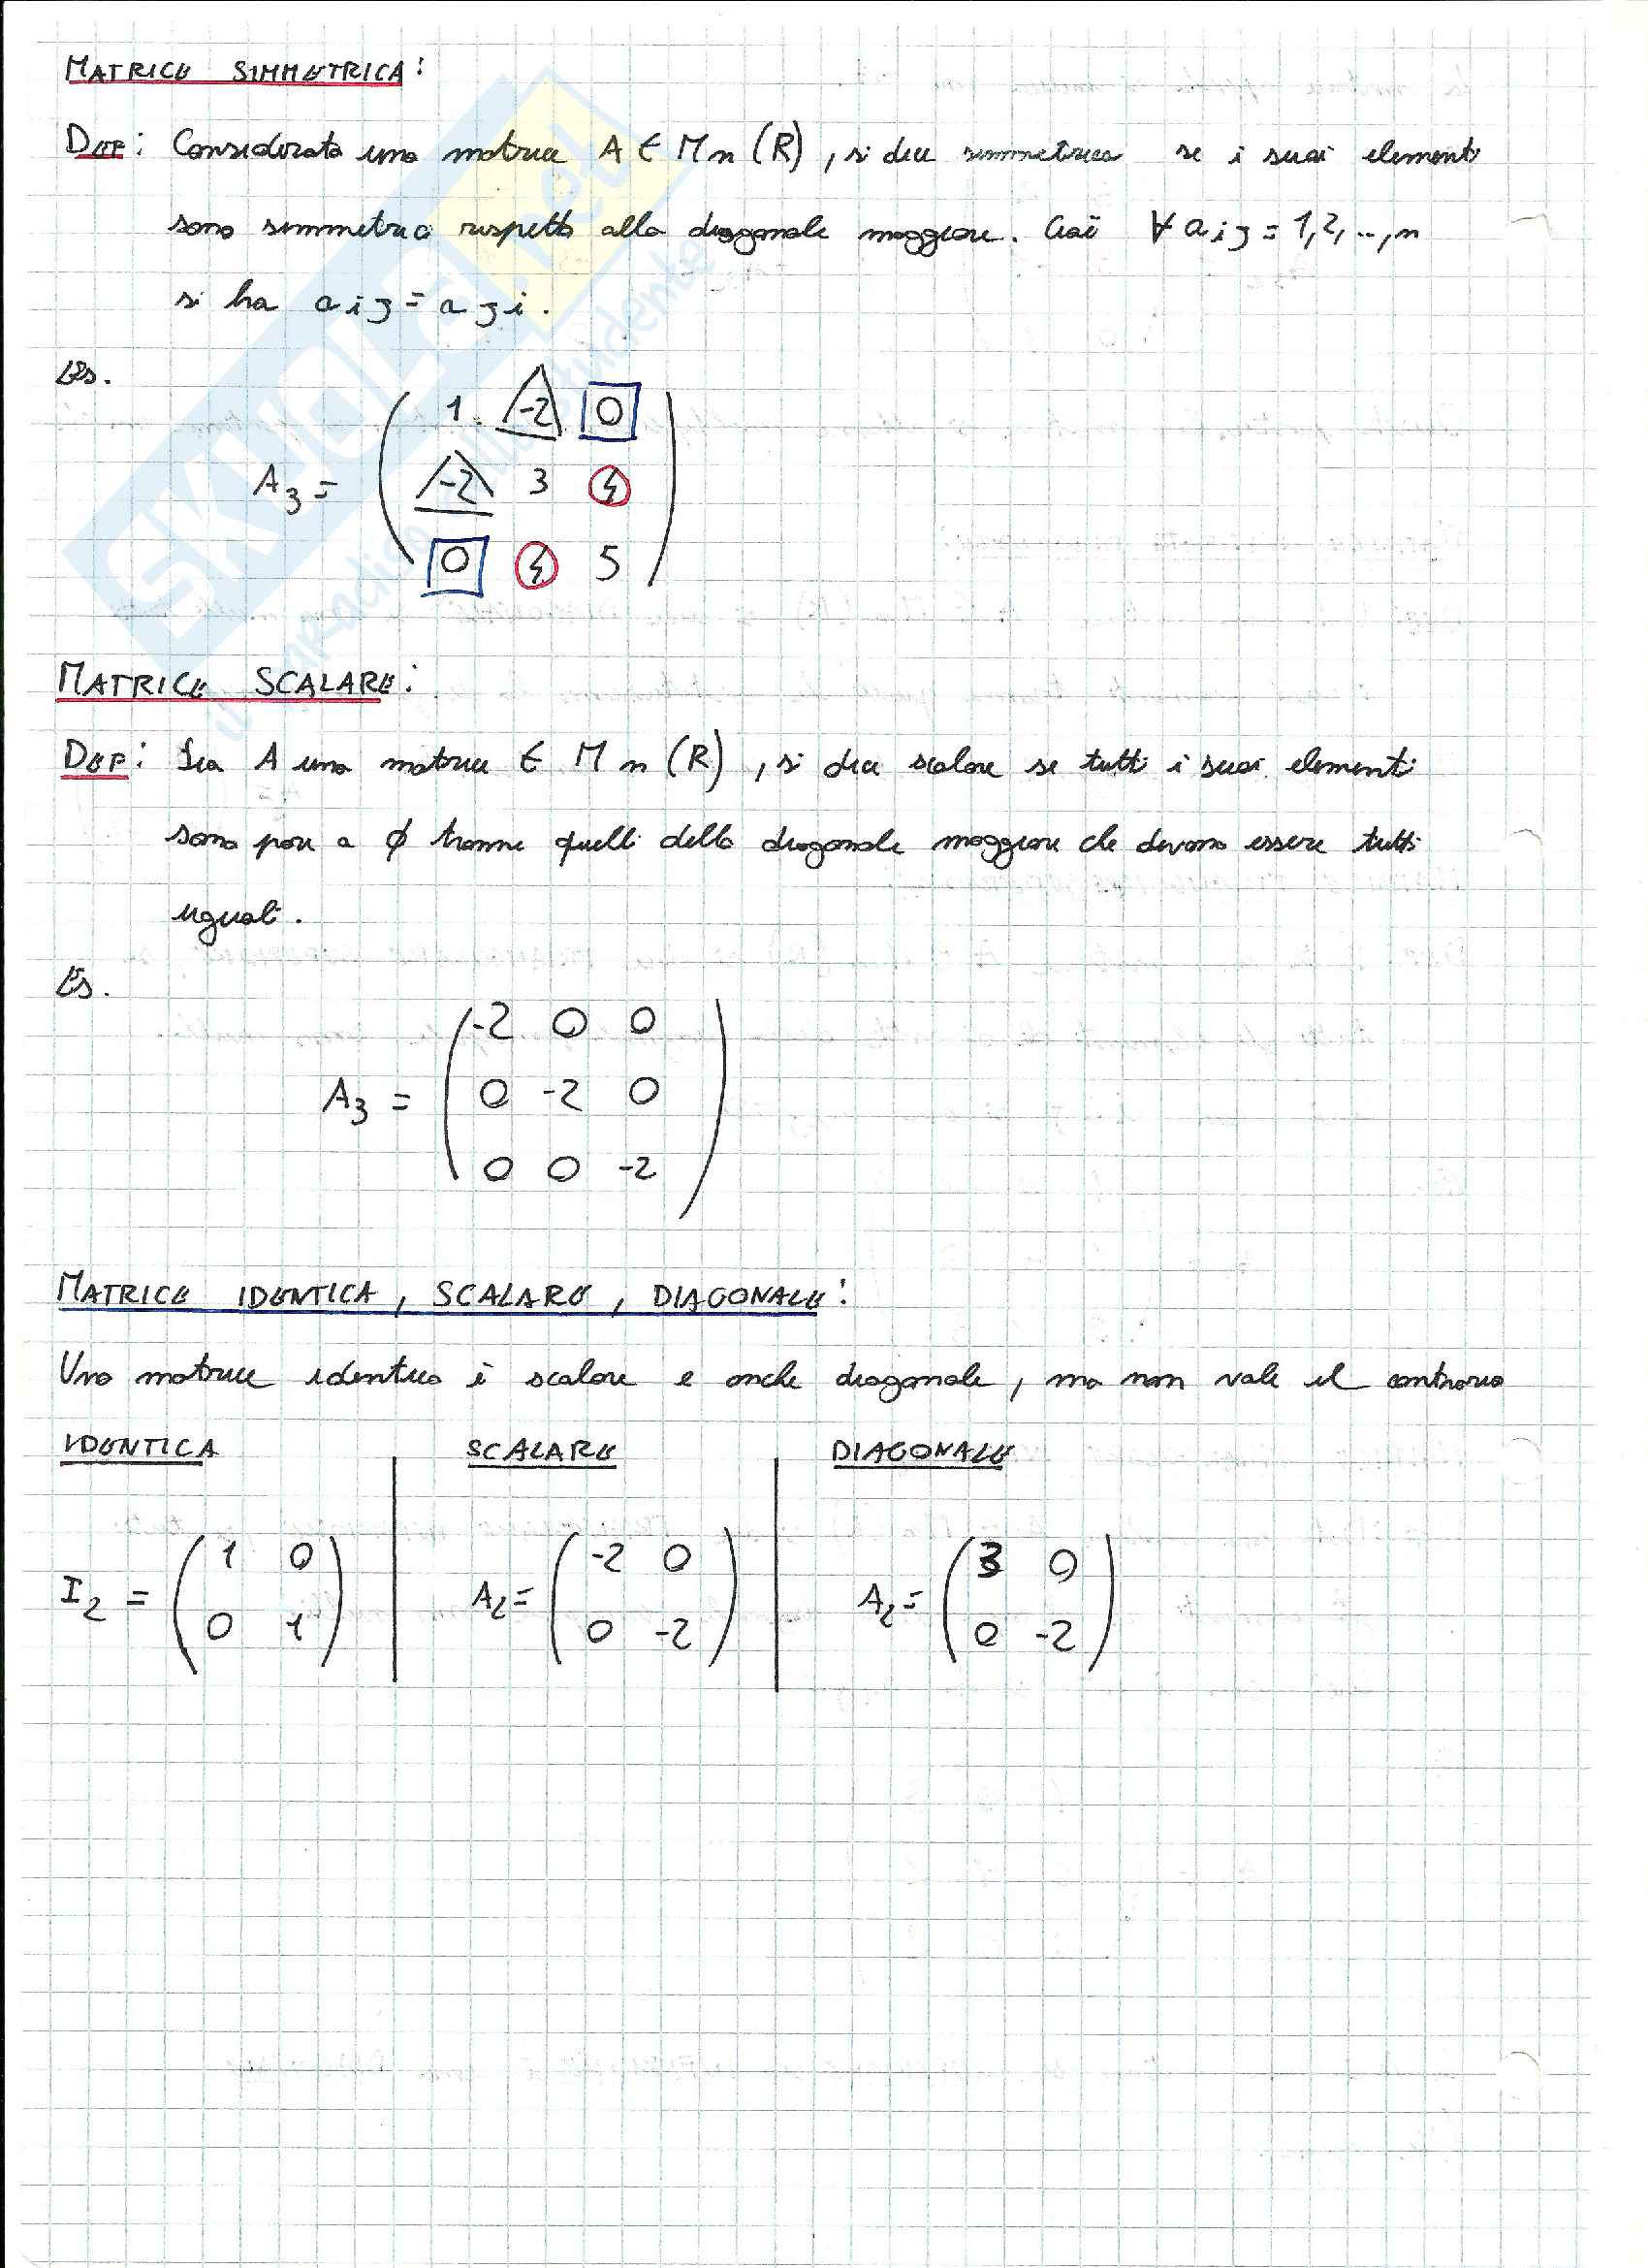 MATRICE SIMMETRICA:
DEF: Considerata una matrice A ∈ Mn (R), si dice simmetrica se i suoi elementi
sono simmetrici rispetto alla diagonale maggiore. Cioè ∀ a i j = 1,2, .., n
si ha a i j = a j i.
Es.
1 -2 0
A3 = -2 3 4
0 4 5
MATRICE SCALARE:
DEF: Sia A una matrice ∈ M n (R), si dice scalare se tutti i suoi elementi
sono pari a ϕ tranne quelli della diagonale maggiore che devono essere tutti
uguali.
Es.
-2 0 0
A3 = 0 -2 0
0 0 -2
MATRICE IDENTICA, SCALARE, DIAGONALE:
Una matrice identica è scalare e anche diagonale, ma non vale il contrario
IDENTICA SCALARE DIAGONALE
1 0 -2 0 3 0
I2 = A2= A2=
0 1 0 -2 0 -2
SKUOLA.net